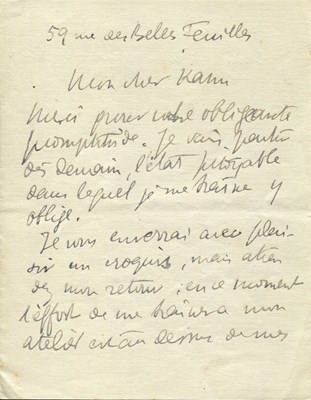 59 rue des Belles Feuilles
Mon cher Kahn
Merci pour votre obligeante
promptitude. Je vais partir
dès demain, l'état pitoyable
dans lequel je me traîne y
oblige.
Je vous enverrai avec plai-
sir un croquis, mais atten
dez mon retour, en ce moment
l'effort de me traîner a mon
atelier est au dessus de mes